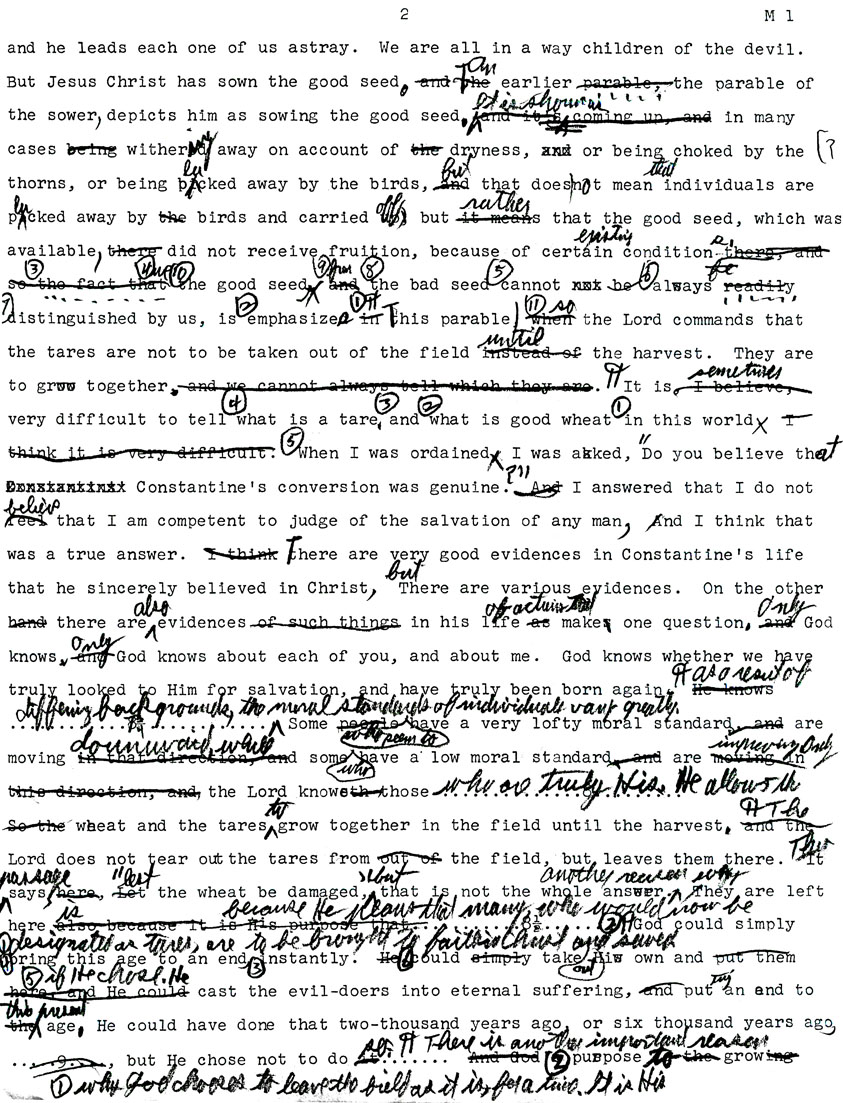 2 M 1
and he leads each one of us astray. We are all in a way children of the devil.
An
But Jesus Christ has sown the good seed, and The earlier parable, the parable of
It is shown as
the sower, depicts him as sowing the good seed, and it is coming up, and in many
cases being withered away on account of the dryness, xxx or being choked by the [?
but that
thorns, or being picked away by the birds, and that does not mean individuals are
off, rather
picked away by the birds and carried but it means that the good seed, which was
existing s,
available, there did not receive fruition, because of certain condition there, and
③ ⑩ ⑨ from ⑧ ⑤ ⑥ be
so the fact that the good seed and the bad seed cannot xxx be always readily
② ① ¶ ⑪ so
distinguished by us, is emphasized in This parable when the Lord commands that
until
the tares are not to be taken out of the field instead of the harvest. They are
¶ sometimes
to grow together, and we cannot always tell which they are. It is, I believe,
④ ③ ② ①
very difficult to tell what is a tare, and what is good wheat in this world I
think it is very difficult. ⑤ When I was ordained I was asked, "Do you believe that
Constantine's conversion was genuine.?" And I answered that I do not
believe
feel that I am competent to judge of the salvation of any man, And I think that
was a true answer. I think There are very good evidences in Constantine's life
but
that he sincerely believed in Christ, There are various evidences. On the other
also of actions that Only
hand there are evidences of such things in his life as makes one question, and God
Only
knows, and God knows about each of you, and about me. God knows whether we have
¶ As a result of
truly looked to Him for salvation, and have truly been born again. He knows
differing backgrounds, the moral standards of individuals vary greatly.
Some people have a very lofty moral standard, and are
downward while who seem to improving Only
moving in that direction, and some have a low moral standard, and are moving in
who
this direction, and, the Lord knoweth those who are truly His. He alloweth
to ¶ The
So the wheat and the tares grow together in the field until the harvest, and the
Lord does not tear out the tares from out of the field, but leaves them there. The It
passage "lest but another reason why
says here, Let the wheat be damaged, that is not the whole answer. They are left
is because He plans that many, who would now be
here also because it is His purpose that 8½ ② ¶ God could simply
designated as tares, are to be brought to faith in Christ and saved
① bring this age to an end instantly. ③ He could simply take His own and put them
⑤ if He chose. He out
here, and He could cast the evil-doers into eternal suffering, and put an end to
this present
the age, He could have done that two-thousand years ago, or six thousand years ago,
so. ¶ There is another important reason
....9...., but He chose not to do it........ And God ② purpose to the growing
① why God chooses to leave the field as it is, for a time. It is His